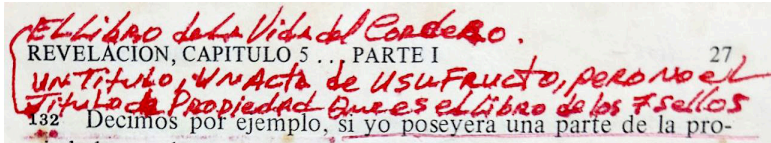 El Libro de La Vida del Cordero.
REVELACION, CAPITULO 5 . . . PARTE I 27
un Titulo, un Acta de Usufructo, pero No el
Titulo de Propiedad que es el Libro de los 7 sellos
132 Decimos por ejemplo, si yo poseyera una parte de la pro-